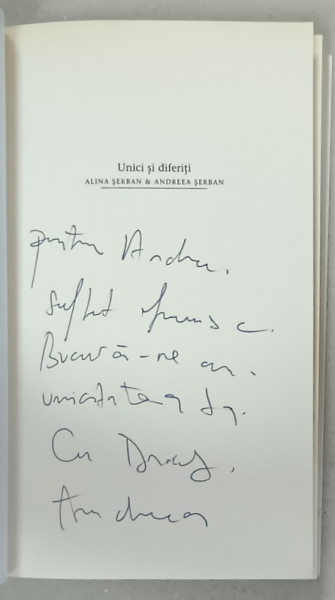 Unici și diferiți
ALINA ȘERBAN & ANDREEA ȘERBAN
pentru Andra,
suflet frumos
Bucură-ne cu
unicitatea ta.
Cu Drag,
Andreea